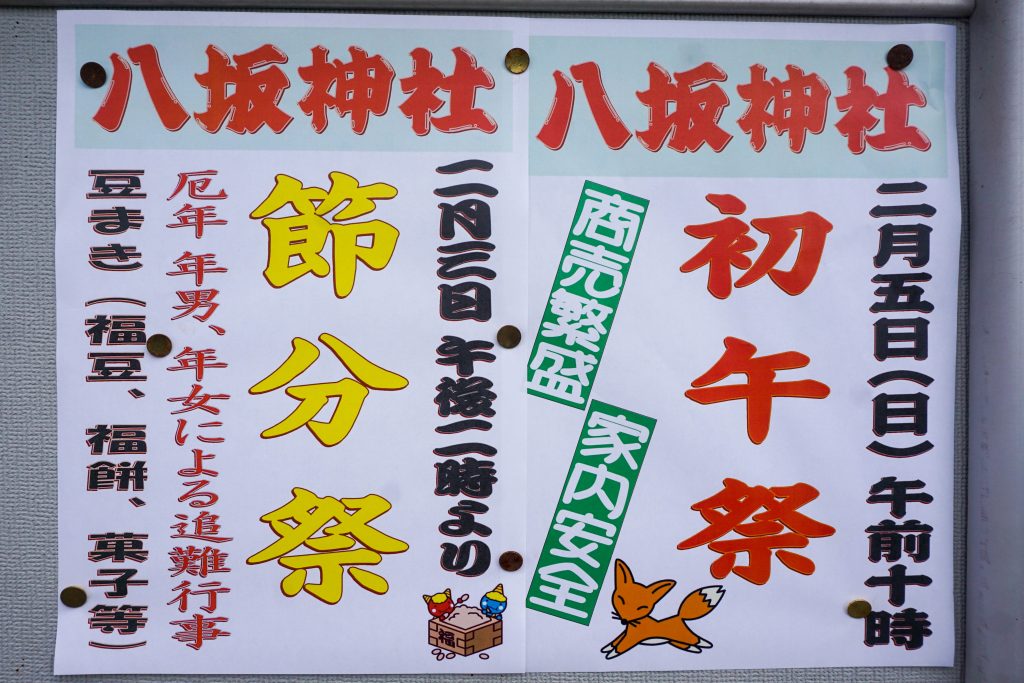 八坂神社
二月五日（日）午前十時
初午祭
商売繁盛
家内安全
八坂神社
二月三日 午後二時より
節分祭
厄年 年男、年女による追難行事
豆まき（福豆、福餅、菓子等）
福